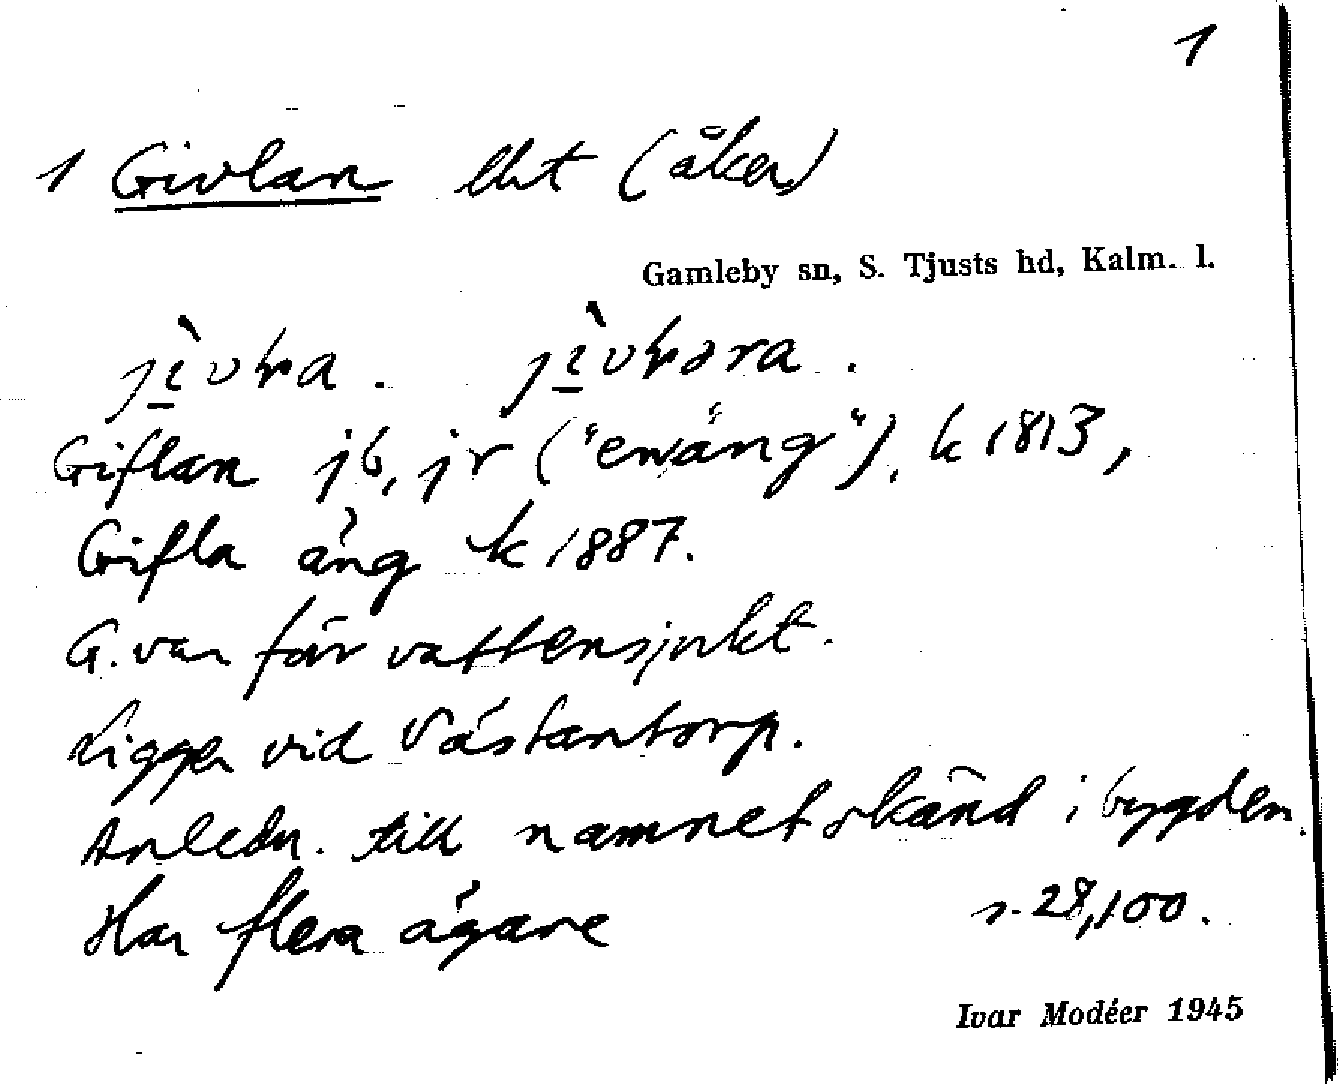 1
1 Givlan ebt (åker)
Gamleby sn, S. Tjusts hd, Kalm. l.
Giflan jb, jr ("ewäng"), k 1813,
Gifla äng k 1887.
G. var för vattensjukt.
Ligger vid Västantorp.
Anledn. till namnet okänd i bygden.
Har flera ägare s. 28,100.
Ivar Modéer 1945